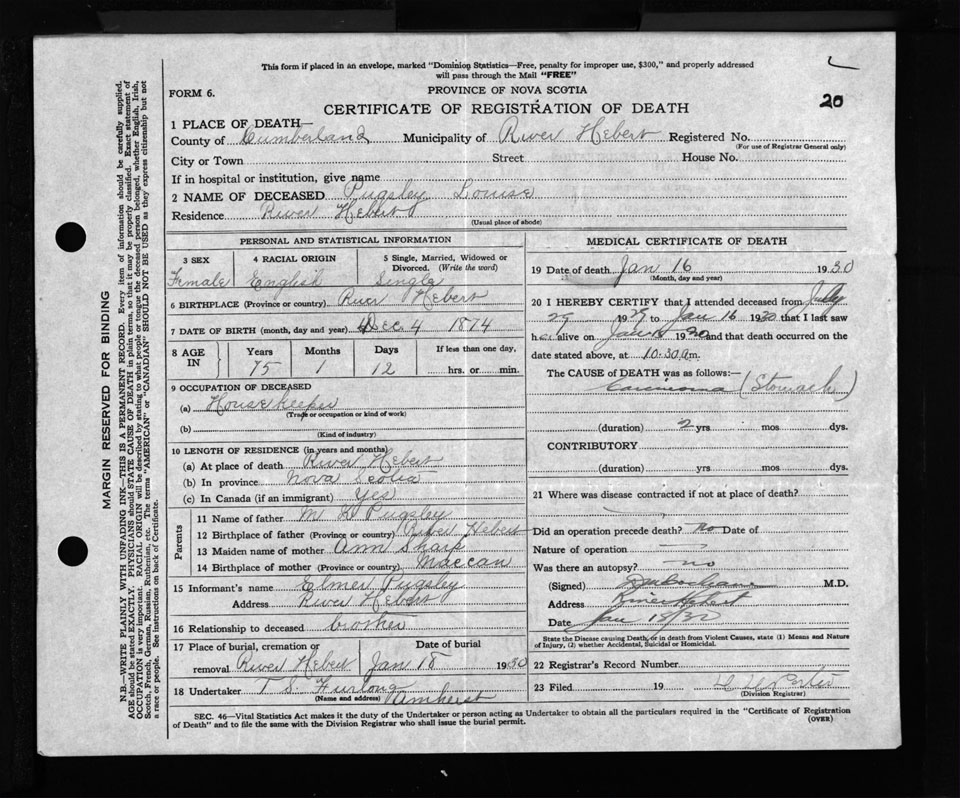 This form if placed in an envelope, marked "Dominion Statistics—Free, penalty for improper use, $300," and properly addressed
will pass through the Mail "FREE"
FORM 6.
PROVINCE OF NOVA SCOTIA
20
CERTIFICATE OF REGISTRATION OF DEATH
1 PLACE OF DEATH—
County of Cumberland Municipality of River Hebert Registered No.
(For use of Registrar General only)
City or Town Street House No.
If in hospital or institution, give name
2 NAME OF DECEASED Pugsley Louise
Residence River Hebert
(Usual place of abode)
PERSONAL AND STATISTICAL INFORMATION
3 SEX 4 RACIAL ORIGIN 5 Single, Married, Widowed or
Divorced. (Write the word)
Female English Single
6 BIRTHPLACE (Province or country) River Hebert
7 DATE OF BIRTH (month, day and year) Dec 4 1874
8 AGE IN Years Months Days If less than one day,
75 1 12 hrs. or min.
9 OCCUPATION OF DECEASED
(a) Housekeeper
(Trade or occupation or kind of work)
(b)
(Kind of industry)
10 LENGTH OF RESIDENCE (in years and months)
(a) At place of death River Hebert
(b) In province Nova Scotia
(c) In Canada (if an immigrant) Yes
Parents
11 Name of father M L Pugsley
12 Birthplace of father (Province or country) River Hebert
13 Maiden name of mother Ann Sharp
14 Birthplace of mother (Province or country) Maccan
15 Informant's name Elmer Pugsley
Address River Hebert
16 Relationship to deceased brother
17 Place of burial, cremation or Date of burial
removal River Hebert Jan 18 1930
18 Undertaker T. S. Furlong
(Name and address) Amherst
MEDICAL CERTIFICATE OF DEATH
19 Date of death Jan 16 1930
(Month, day and year)
20 I HEREBY CERTIFY that I attended deceased from July
29 1929 to Jan 16 1930 that I last saw
her alive on Jan 1930 and that death occurred on the
date stated above, at 10.30 a.m.
The CAUSE of DEATH was as follows:—
Carcinoma (Stomach)
(duration) 2 yrs. mos dys.
CONTRIBUTORY
(duration) yrs. mos dys.
21 Where was disease contracted if not at place of death?
Did an operation precede death? no Date of
Nature of operation
Was there an autopsy? no
(Signed) M.D.
Address River Hebert
Date Jan 18/30
State the Disease causing Death, or in death from Violent Causes, state (1) Means and Nature
of Injury, (2) whether Accidental, Suicidal or Homicidal.
22 Registrar's Record Number
23 Filed 19
(Division Registrar)
SEC. 46—Vital Statistics Act makes it the duty of the Undertaker or person acting as Undertaker to obtain all the particulars required in the "Certificate of Registration
of Death" and to file the same with the Division Registrar who shall issue the burial permit. (OVER)
MARGIN RESERVED FOR BINDING
N.B.—WRITE PLAINLY WITH UNFADING INK—THIS IS A PERMANENT RECORD. Every item of information should be carefully supplied.
AGE should be stated EXACTLY. PHYSICIANS should STATE CAUSE OF DEATH in plain terms, so that it may be properly classified. Exact statement of
OCCUPATION is very important. RACIAL ORIGIN will be described by stating to what people or tongue the deceased person belonged, whether English, Irish,
Scotch, French, German, Russian, Ruthenian, etc. The terms "AMERICAN" or "CANADIAN" SHOULD NOT BE USED as they express citizenship but not
a race or people. See instructions on back of Certificate.